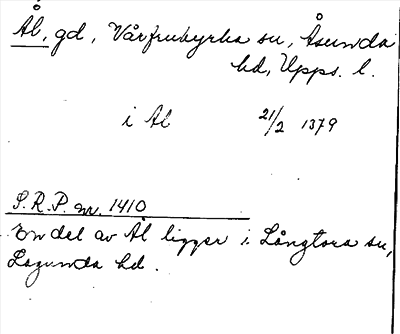 Ål, gd, Vårfrukyrka sn, Åsunda
hd, Upps. l.
i Al 21/2 1379
S.R.P. nr. 1410
En del av Ål ligger i Långtora sn,
Lagunda hd.